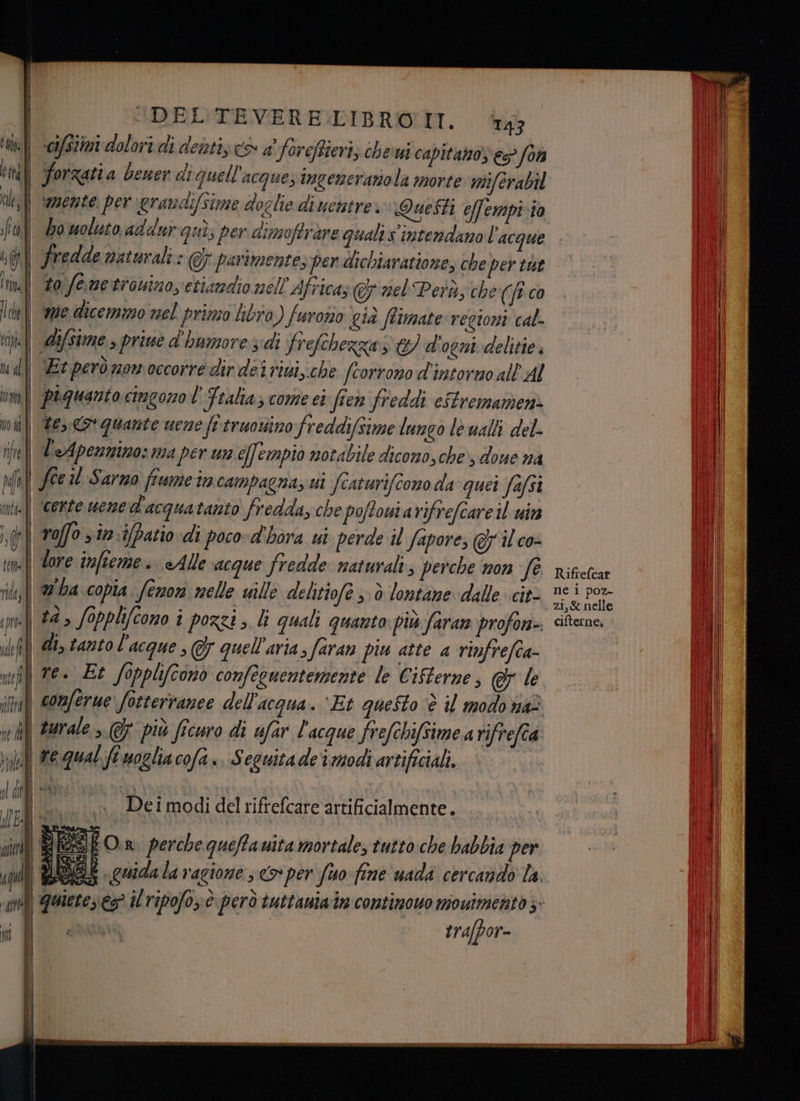 DEL TEVERE LIBRO II. 143
cissimi dolori di denti, & a' forestieri, che ui capitano, es' son
forzati a bever di quell'acque, ingenerano la morte miserabil
mente per grandissime doglie di uentre. Questi essempi io
ho uoluto addur quì, per dimostrare quali s'intendano l'acque
fredde naturali: & parimente, per dichiaratione, che per tut
to se ne trouino, etiandio nell' Africa, & nel Perù, che (si co
me dicemmo nel primo libro) furono già stimate regioni cal-
dissime, priue d'humore, di freschezza, & d'ogni delitie.
Et però non occorre dir dei riui, che scorrono d'intorno all' Al
pi, quanto cingono l'Italia, come ei sien freddi estremamen-
te, & quante uene si truouino freddissime lungo le ualli del-
l'Apennino: ma per un essempio notabile dicono, che, doue na
sce il Sarno fiume in campagna, ui scaturiscono da quei sassi
certe uene d'acqua tanto fredda, che postoui a rifrescare il uin
rosso, in ispatio di poco d'hora ui perde il sapore, & il co-
lore insieme. Alle acque fredde naturali, perche non se
n'ha copia senon nelle uille delitiose, ò lontane dalle cit-
tà, sopplíscono i pozzi, li quali quanto più saran profon-
di, tanto l'acque, & quell'aria, saran piu atte a rinfresca-
re. Et sopplíscono conseguentemente le Cisterne, & le
conserue sotterranee dell'acqua. Et questo è il modo na-
turale, & più sicuro di usar l'acque freschissime a rifresca
re qual si uoglia cosa. Seguita de i modi artificiali.
Rifrescar
ne i poz-
zi, & nelle
cisterne,
Dei modi del rifrescare artificialmente.
OR perche questa uita mortale, tutto che habbia per
guida la ragione, & per suo fine uada cercando la
quiete, es' il riposo, è però tuttauia in continouo mouimento,
traspor-